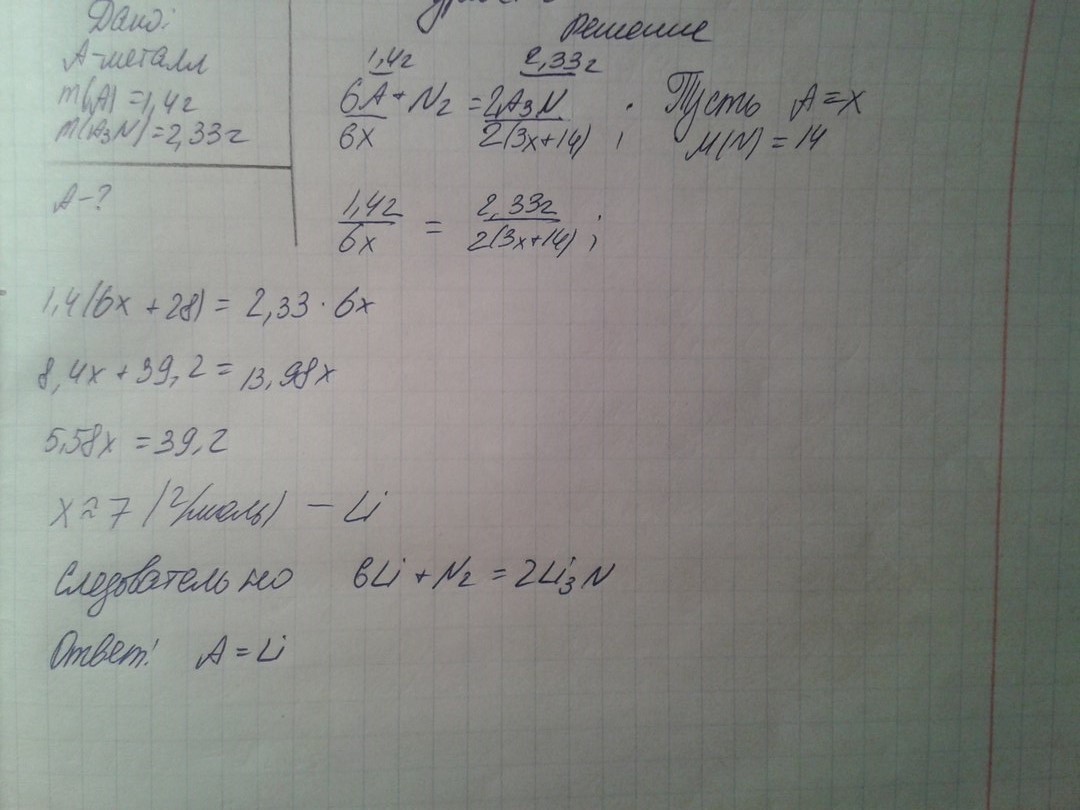 Дано:
Решение
А-металл
m(A) = 1,4г
m(A₃N) = 2,33г
А-?
1,4г 2,33г
6A + N₂ = 2A₃N . Пусть A = x
6x 2(3x+14) ; M(N) = 14
1,4г = 2,33г ;
6x 2(3x+14)
1,4(6x + 28) = 2,33 · 6x
8,4x + 39,2 = 13,98x
5,58x = 39,2
x ≈ 7 (г/моль) – Li
Следовательно 6Li + N₂ = 2Li₃N
Ответ: A = Li